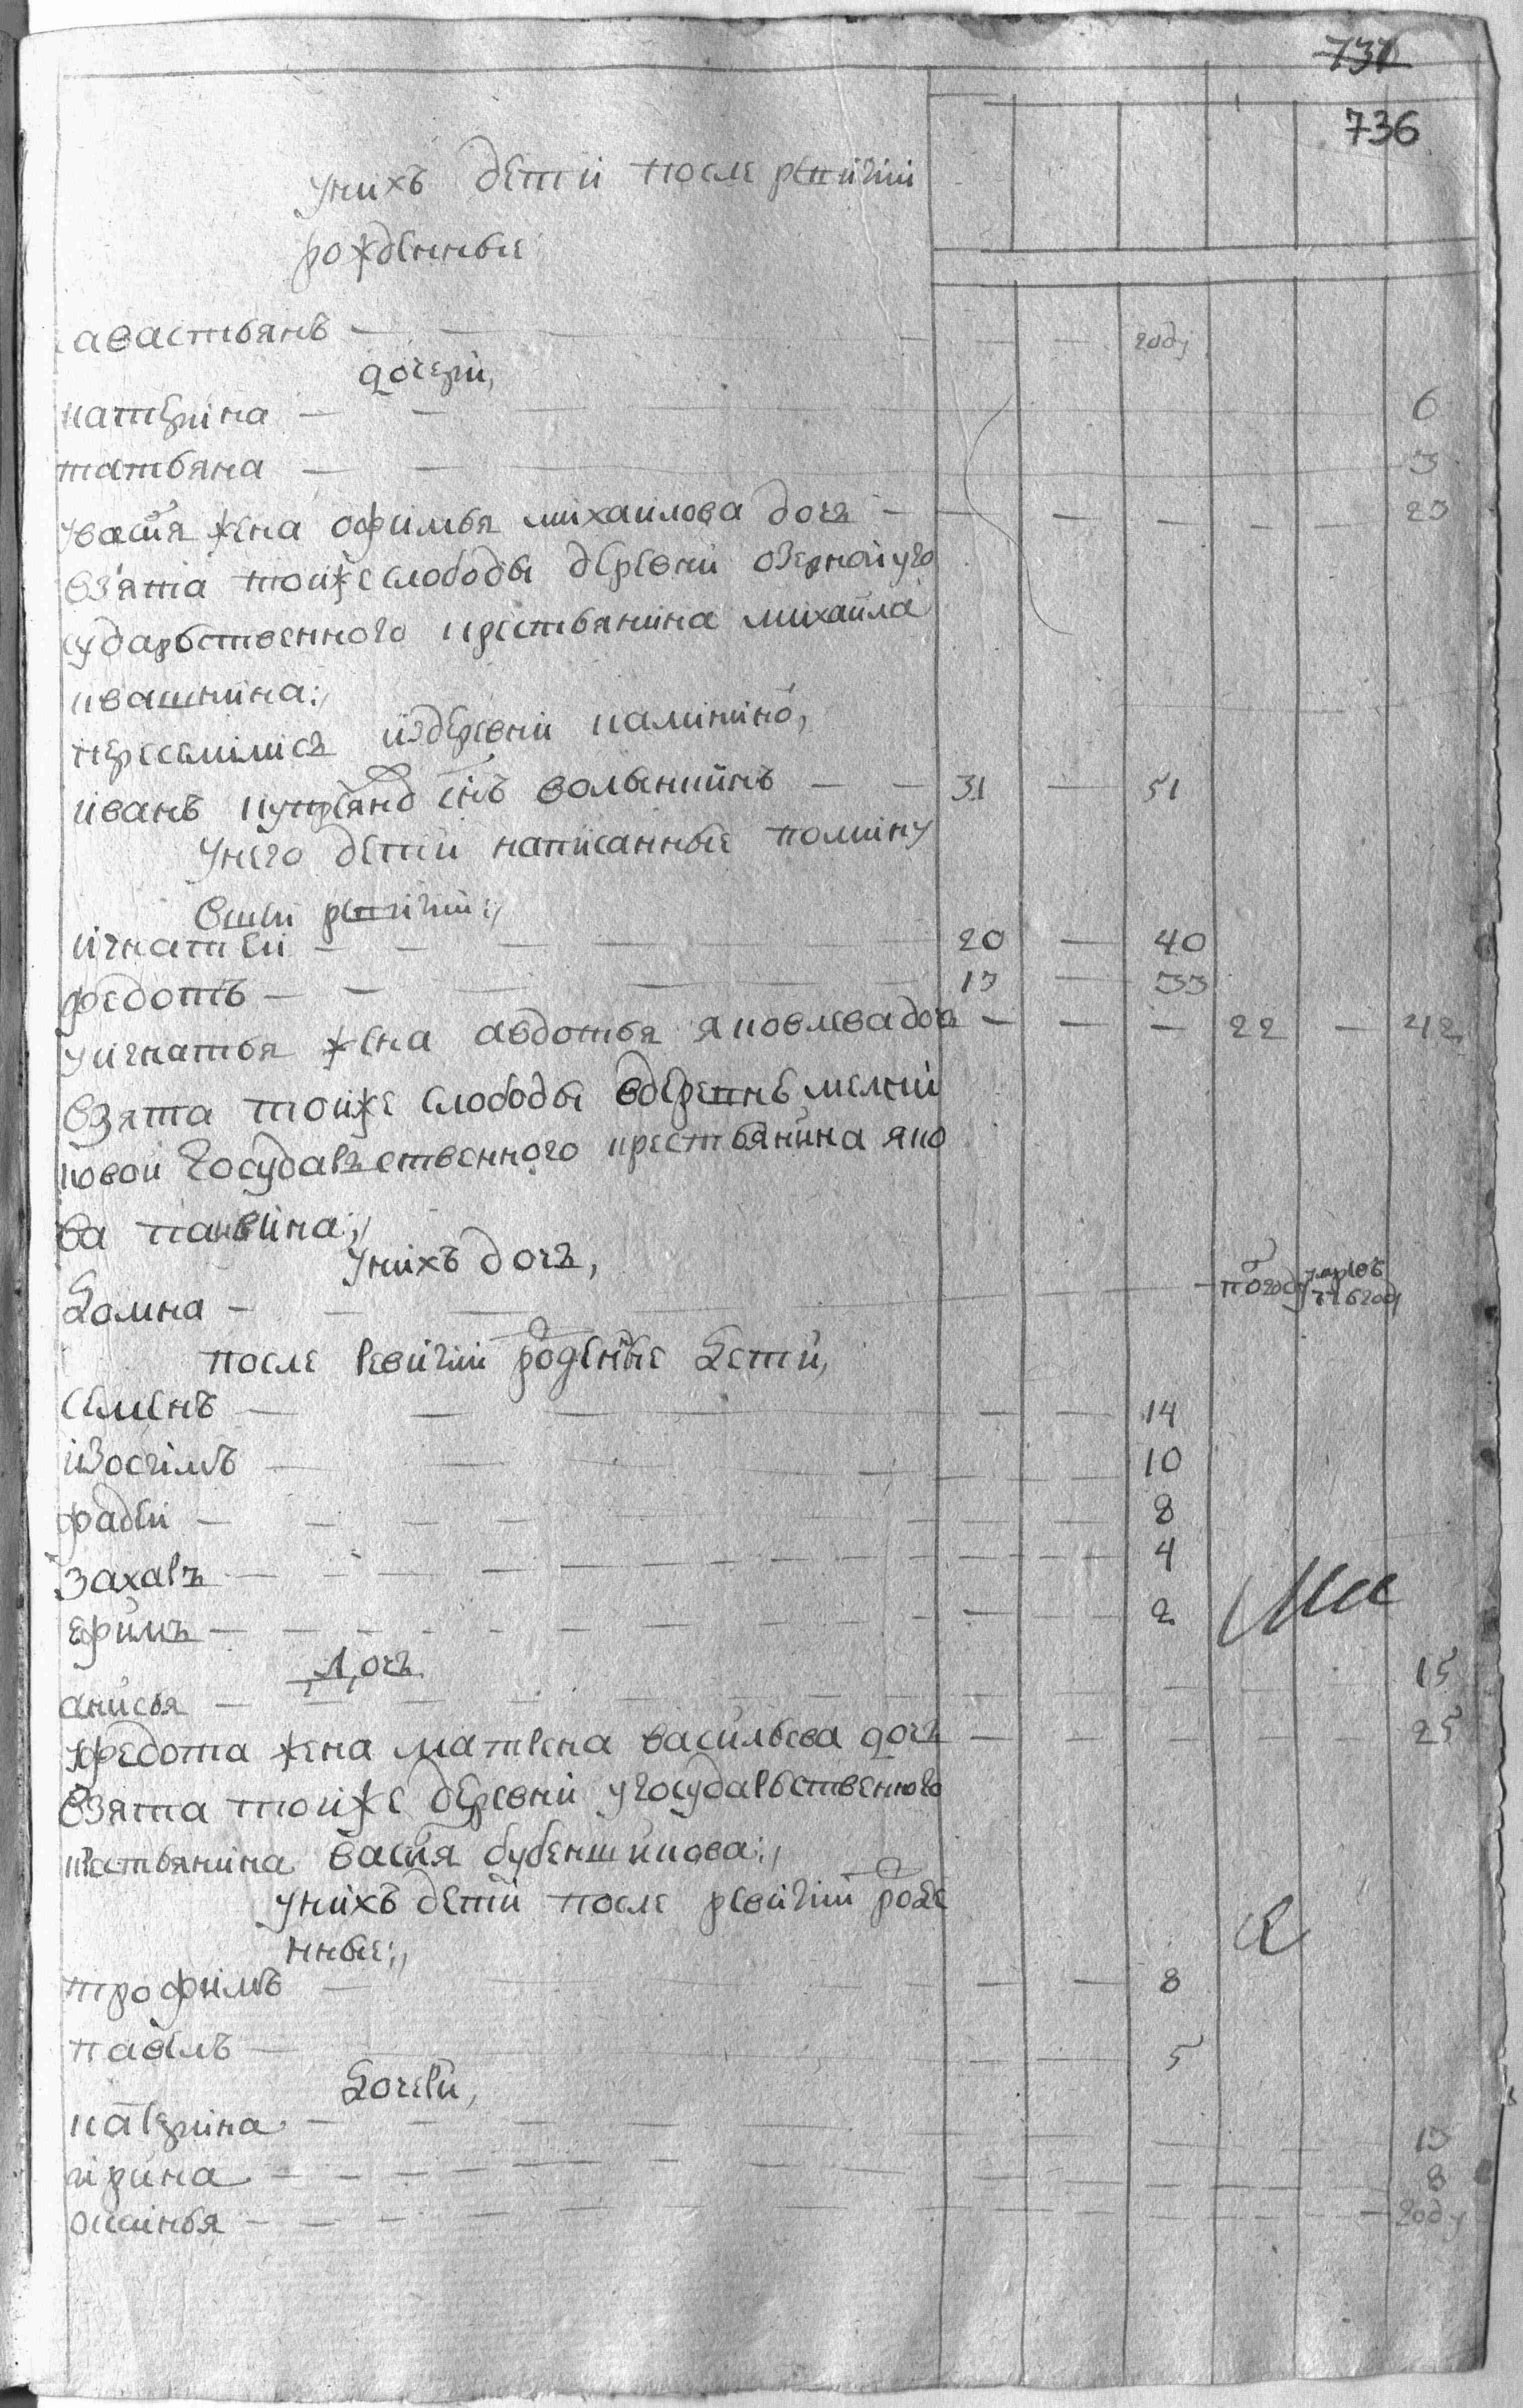 731
736
унихъ детеи после ревизии
рожденные
савастьянъ — — — году
дочери,
катерина — — 6
татьяна — — 3
увасиля жена офимья михаилова дочь — 23
взята тоиже слободы деревни озернои уго
сударьственного крестьянина михаила
ивашкина:,
переселился издеревни калинино,
иванъ куприяно снъ волынкинъ — — 31 — 51
Унего детеи написанные помину
вшеи ревизии:,
игнатеи — — 20 — 40
федотъ — — 13 — 33
уигнатья жена авдотья яковлева дочь — — — 22 — 42
взята тоиже слободы вдеревнѣ мелни
ковои государственного крестьянина яко
ва паквина:,
Унихъ дочь,
Домна — — полгоду умре въ
после ревизии роденые дети,
семенъ — — — 14
изосимъ — — — 10
фадеи — — — 8
захаръ — — — 4
ефимъ — — — 2
дочь
анисья — — — 15
уфедота жена матрена васильева дочь — — — 25
взята тоиже деревни угосударьственного
крестьянина василя бубенщикова:,
унихъ детеи после ревизии роде
нные:,
трофимъ — — — 8
павелъ — — — 5
Дочери,
катерина — — — 13
ирина — — — 8
оксинья — — — году